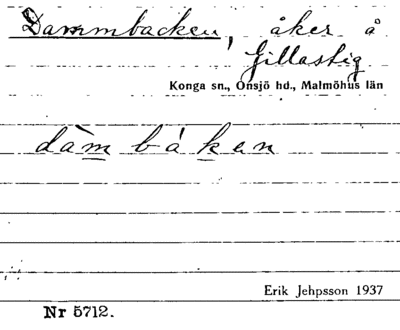 Dammbacken, åker å
Gillastig
Konga sn., Onsjö hd., Malmöhus län
dàm bákan
Erik Jehpsson 1937
Nr 5712.